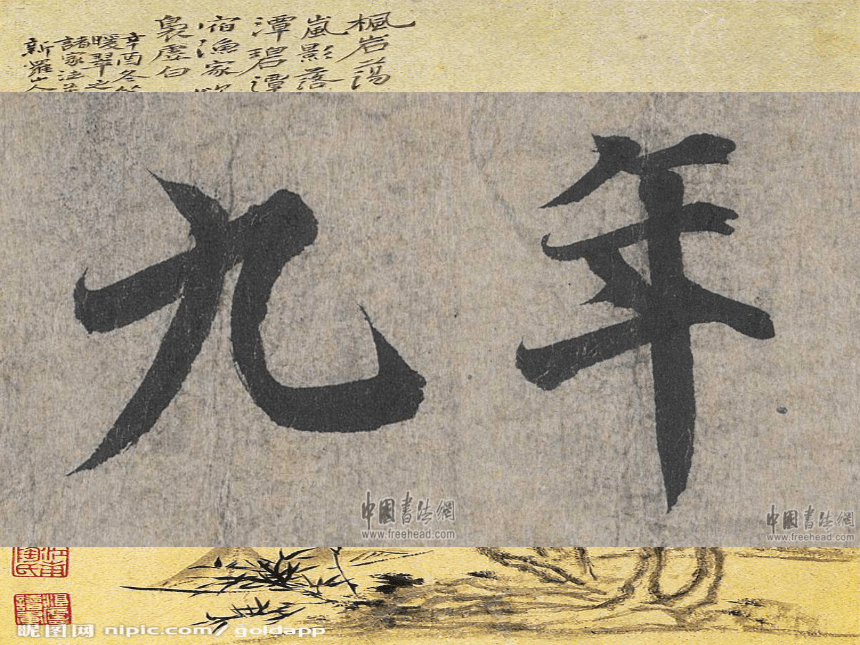 楓岩蕩
嵐影落
潭碧潭
宿漁家
裊虛白
辛酉冬
暖翠之
諸家法
新羅山人
九年
中国书法網
www.freehead.com
中国书法網
www.freehead.com
昵图网 nipic.com/goldapp